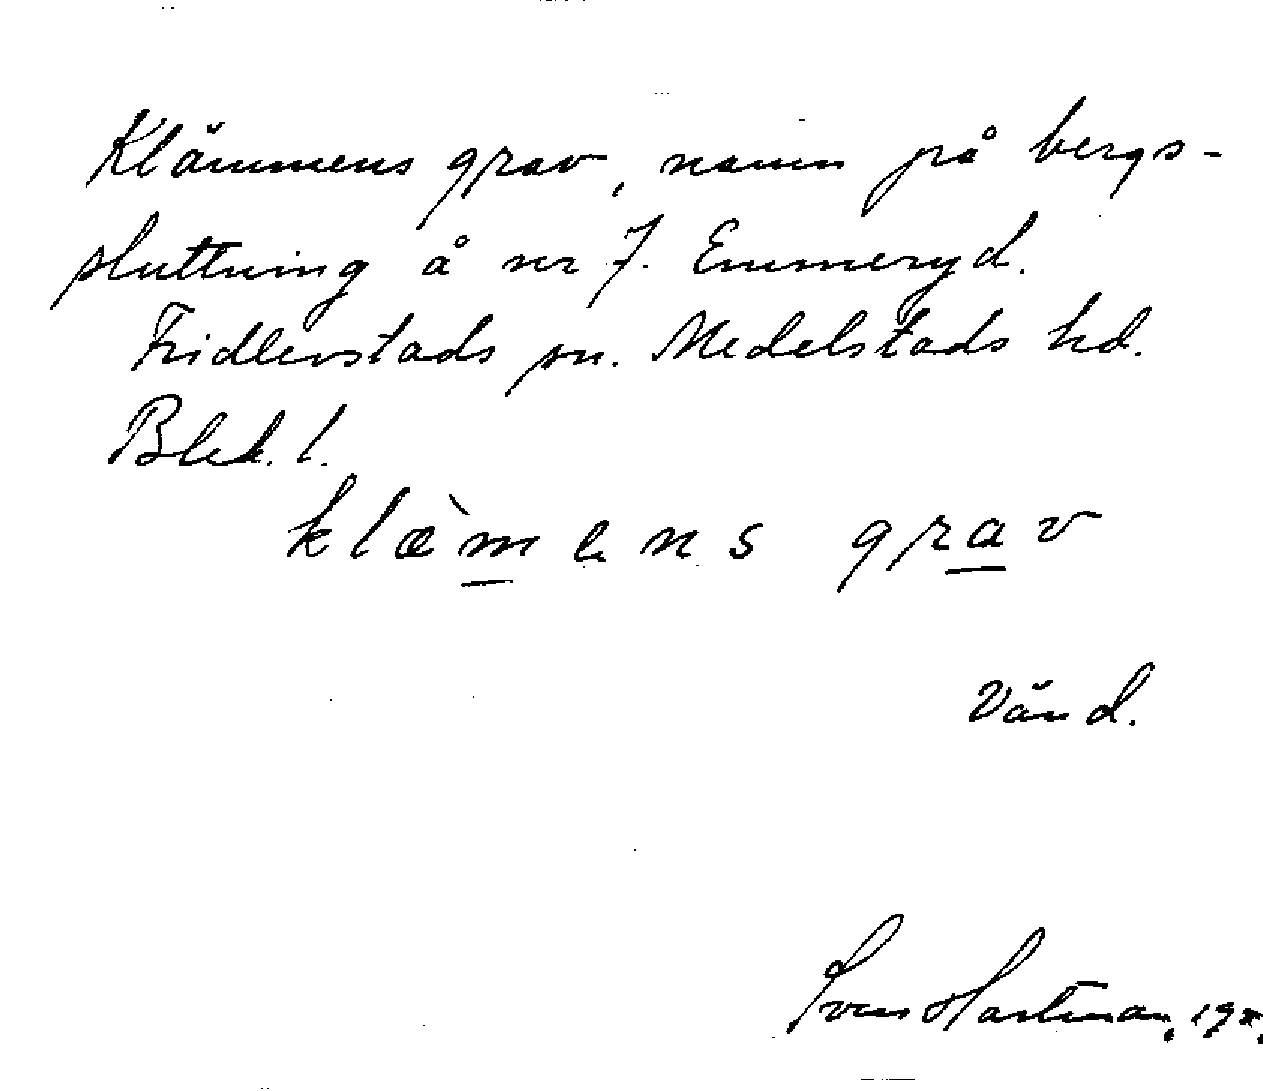 Klämmens grav, namn på bergs-
sluttning å nr 7. Emmeryd.
Fridlevstads sn. Medelstads hd.
Blek. l.
klæ̀mens grav
Vänd.
Sven Hartman,